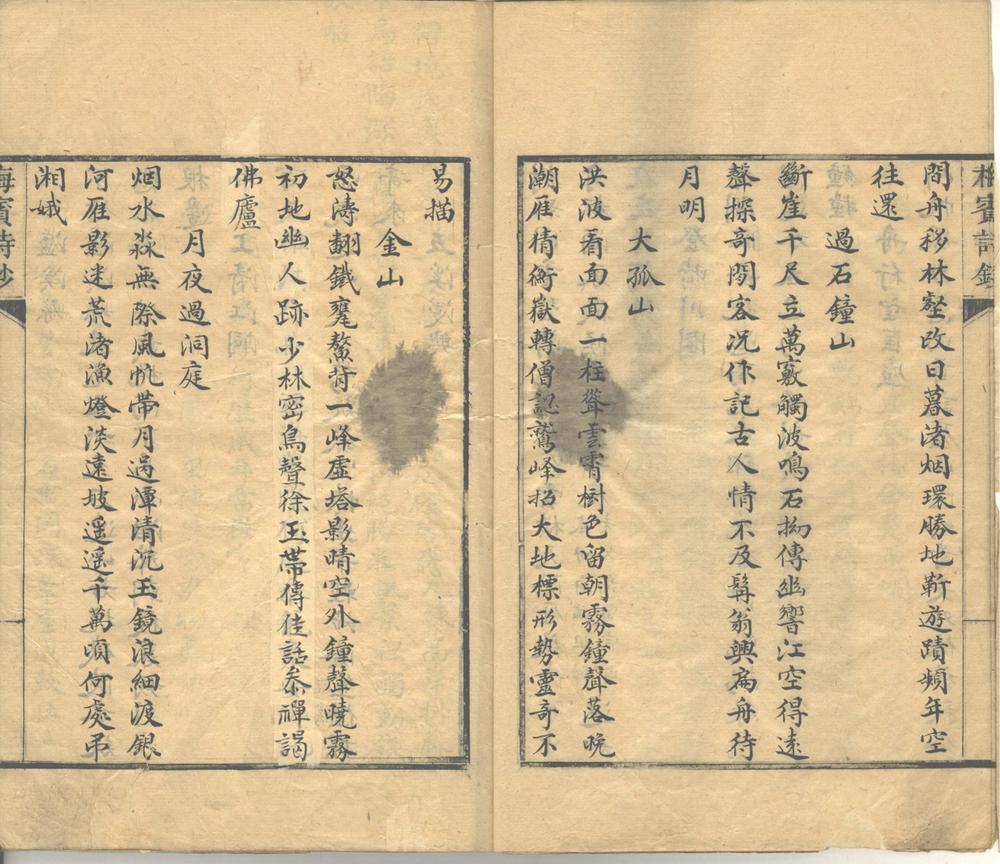 梅賓詩鈔
問舟移林壑改日暮渚烟環勝地靳遊蹟頻年空
往還
過石鐘山
斷崖千尺立萬竅觸波鳴石拗傳幽響江空得遠
聲探奇閑客况作記古人情不及髯翁興扁舟待
月明
大孤山
洪波看面面一柱聳雲霄樹色留朝霧鐘聲落晚
潮雁猜衡嶽轉僧認鷲峰招大地標形勢靈奇不
易描
金山
怒濤翻鐵甕鰲背一峰虛塔影晴空外鐘聲曉霧
初地幽人跡少林密鳥聲徐玉帶傳佳話參禪謁
佛廬
月夜過洞庭
烟水淼無際風帆帶月過潭清沉玉鏡浪細渡銀
河雁影迷荒渚漁燈淡遠坡遥遥千萬頃何處弔
湘娥
梅賓詩鈔